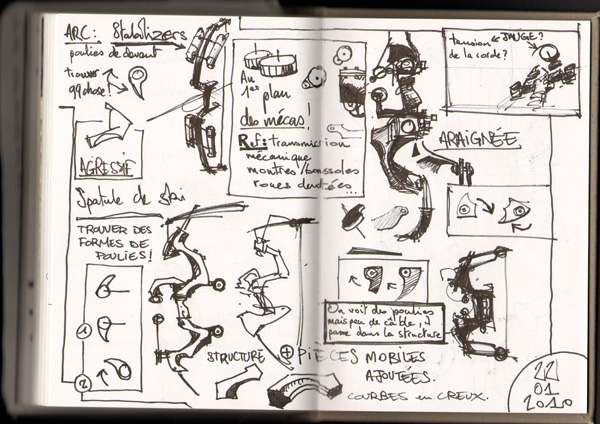 ARC: Stabilizers
poulies de devant
trouver
qq chose!
AGRESSIF
Spatule de ski
TROUVER DES
FORMES DE
POULIES!
1
2
Au
1er plan
des mécas!
Ref: transmission
mécanique
montres/boussoles
roues dentées...
tension
de la corde?
JAUGE?
ARAIGNÉE
On voit des poulies
mais peu de câble, il
passe dans la structure
STRUCTURE + PIÈCES MOBILES
AJOUTÉES.
COURBES en CREUX.
22
01
2010